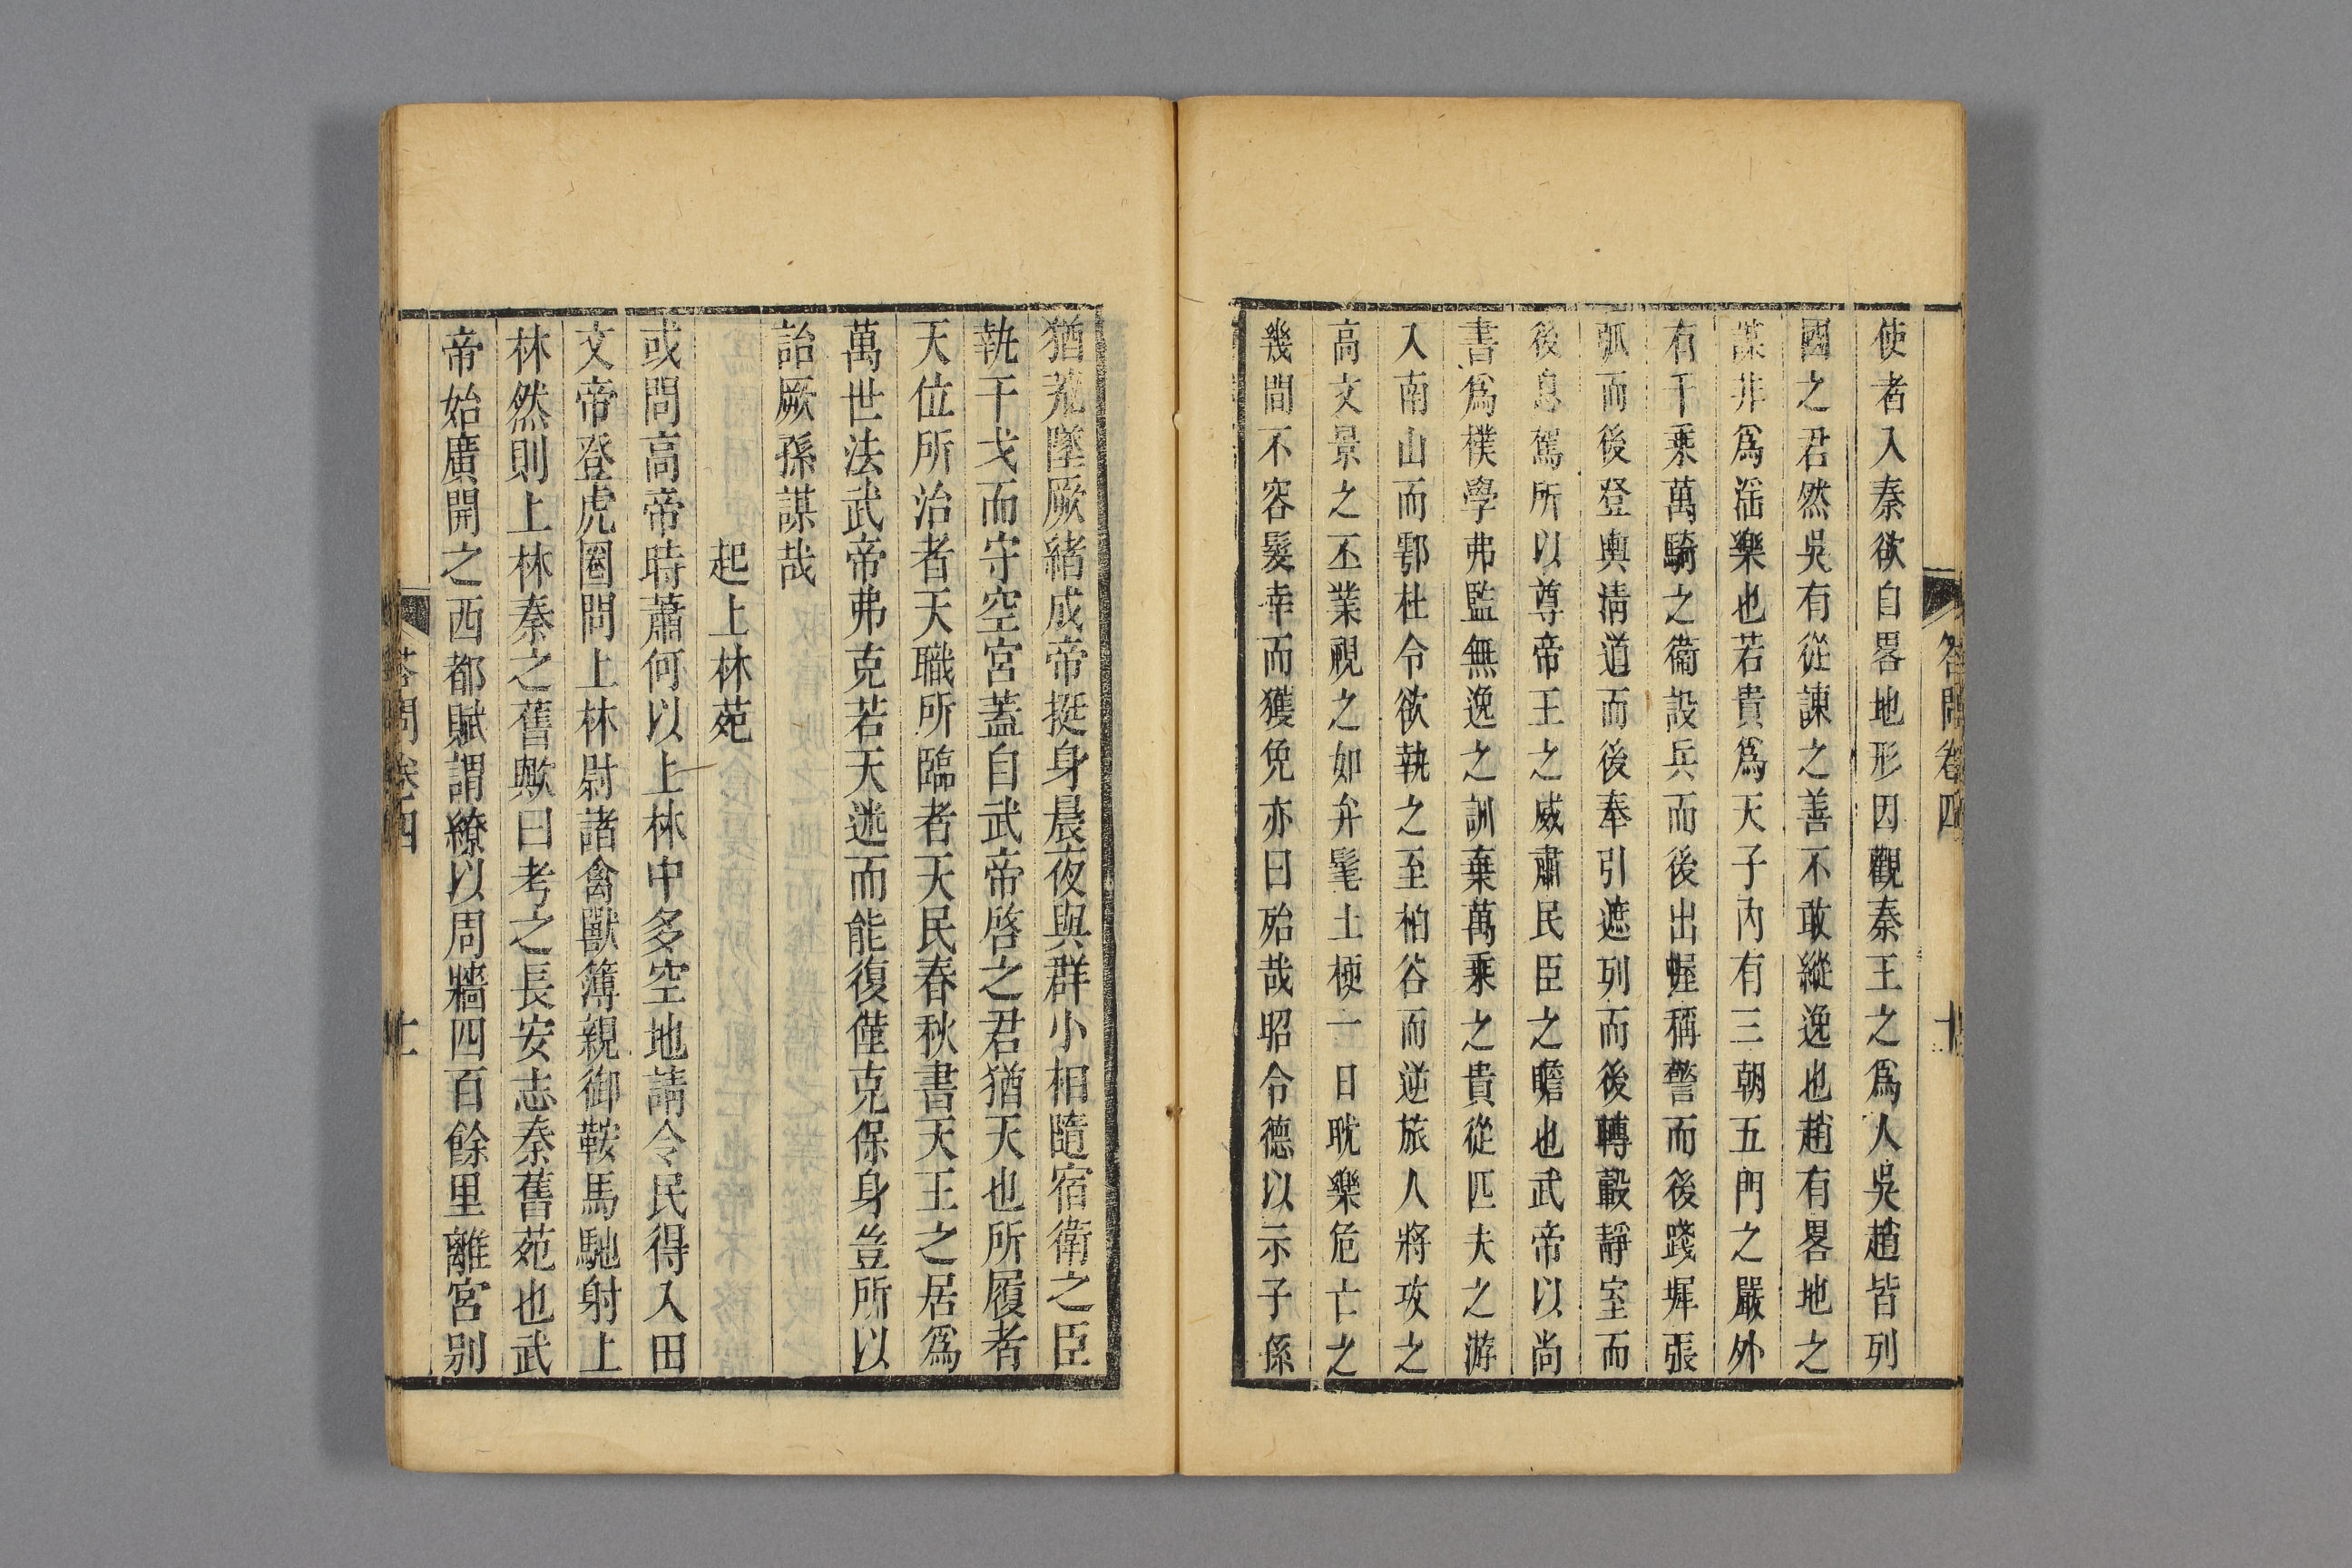 答問卷四
使者入秦欲自畧地形因觀秦王之爲人吳趙皆列
國之君然吳有從諫之善不敢縱逸也趙有畧地之
謀非爲滛樂也若貴爲天子內有三朝五門之嚴外
有千乗萬騎之衞設兵而後出幄稱警而後踐墀張
弧而後登輿清道而後奉引遮列而後轉轂靜室而
後息駕所以尊帝王之威肅民臣之瞻也武帝以尚
書爲樸學弗監無逸之訓棄萬乗之貴從匹夫之游
入南山而鄠杜令欲執之至柏谷而逆旅人將攻之
高文景之丕業視之如弁髦土梗一日耽樂危亡之
幾間不容髮幸而獲免亦曰殆哉昭令德以示子孫
猶荒墜厥緒成帝挺身晨夜與群小相隨宿衛之臣
執干戈而守空宮蓋自武帝啓之君猶天也所履者
天位所治者天職所臨者天民春秋書天王之居爲
萬世法武帝弗克若天迷而能復僅克保身豈所以
詒厥孫謀哉
起上林苑
或問高帝時蕭何以上林中多空地請令民得入田
文帝登虎圈問上林尉諸禽獸簿親御鞍馬馳射上
林然則上林秦之舊歟曰考之長安志秦舊苑也武
帝始廣開之西都賦謂繚以周牆四百餘里離宮别
答問卷四